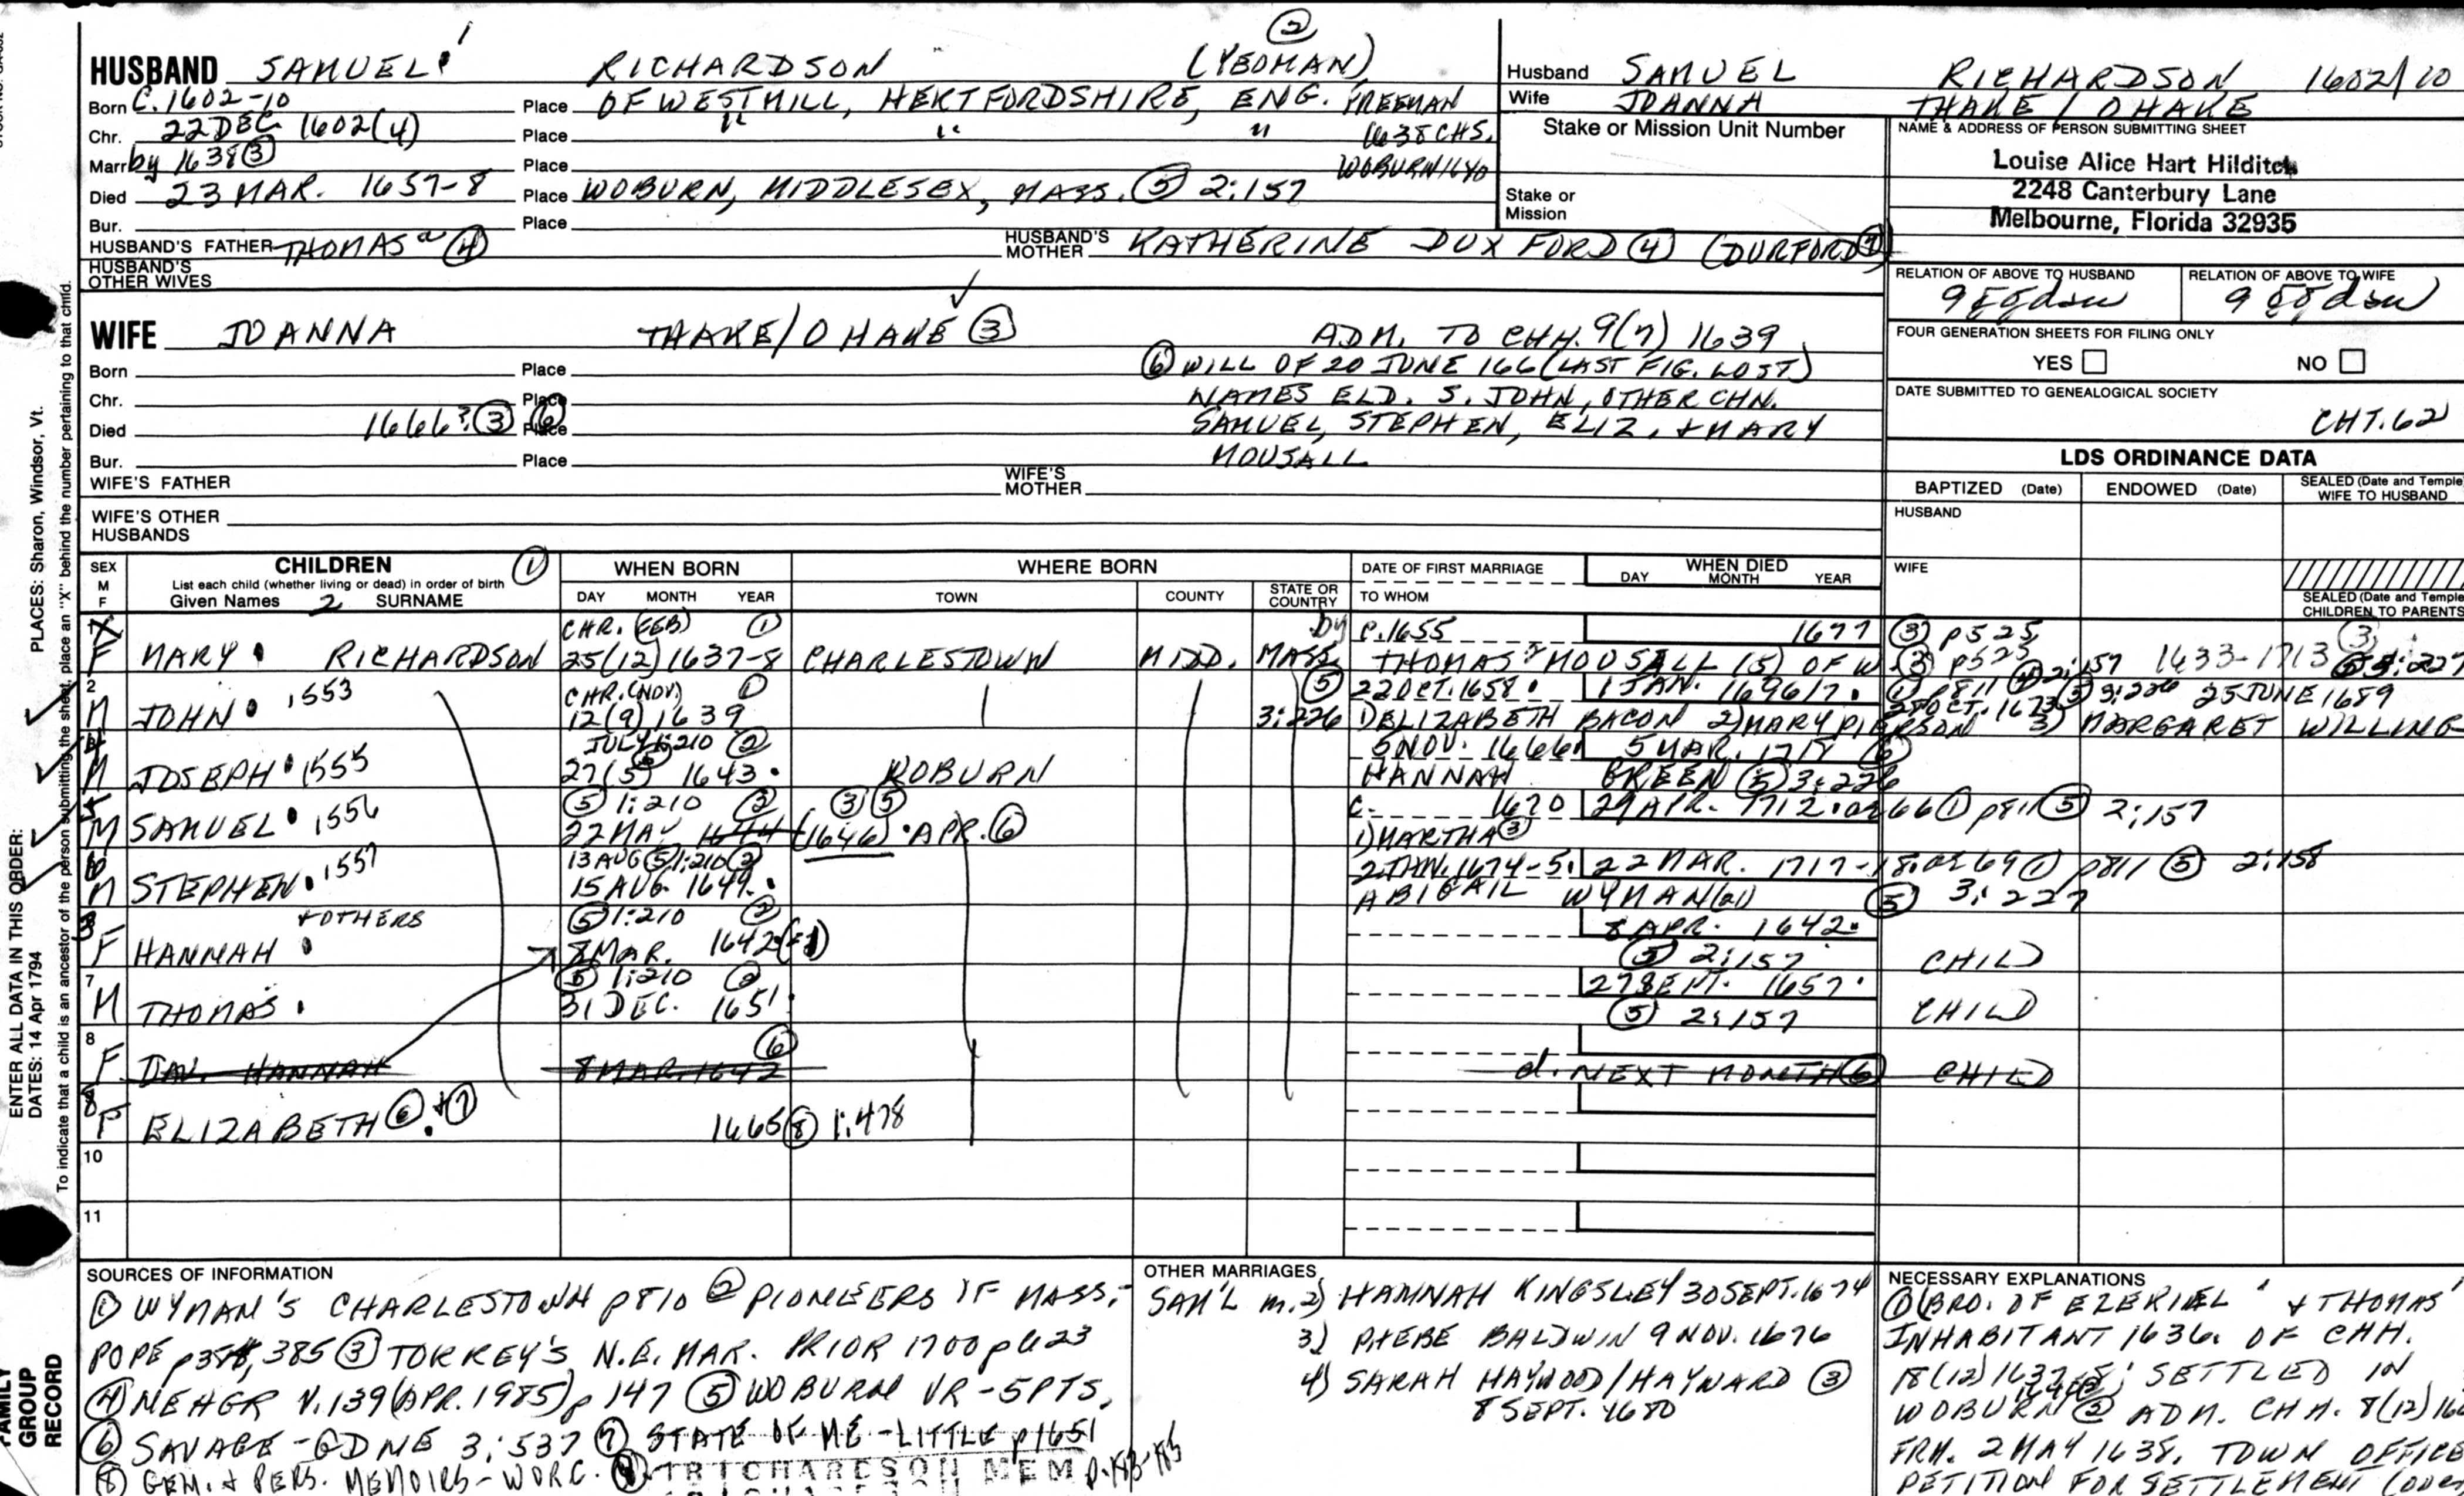 ②
HUSBAND SAMUEL 1 RICHARDSON (YEOMAN)
Born C. 1602-10 Place OF WESTMILL, HERTFORDSHIRE, ENG. FREEMAN
Chr. 22 DEC 1602 (4) Place " " " 1638 CHS.
Marr by 1638 ③ Place WOBURN 1640
Died 23 MAR. 1657-8 Place WOBURN, MIDDLESEX, MASS. ⑤ 2:157
Bur. Place
HUSBAND'S FATHER THOMAS a ④ HUSBAND'S MOTHER KATHERINE DUXFORD ④ (DURFORD ⑦
HUSBAND'S OTHER WIVES
WIFE JOANNA THAKE/OHAKE ③ ADM. TO CHH. 9(7) 1639
Born Place ⑥ WILL OF 20 JUNE 166 (LAST FIG. LOST)
Chr. Place NAMES ELD. S. JOHN, OTHER CHN.
Died 1666? ③ ⑥ Place SAMUEL, STEPHEN, ELIZ. + MARY
Bur. Place MOUSALL
WIFE'S FATHER WIFE'S MOTHER
WIFE'S OTHER HUSBANDS
Husband SAMUEL RICHARDSON 1602/10
Wife JOANNA THAKE / OHAKE
Stake or Mission Unit Number
Stake or Mission
NAME & ADDRESS OF PERSON SUBMITTING SHEET
Louise Alice Hart Hilditch
2248 Canterbury Lane
Melbourne, Florida 32935
RELATION OF ABOVE TO HUSBAND RELATION OF ABOVE TO WIFE
9 ggdau 9 ggdau
FOUR GENERATION SHEETS FOR FILING ONLY
YES NO
DATE SUBMITTED TO GENEALOGICAL SOCIETY
CHT. 62
LDS ORDINANCE DATA
BAPTIZED (Date) ENDOWED (Date) SEALED (Date and Temple) WIFE TO HUSBAND
HUSBAND
WIFE
SEALED (Date and Temple) CHILDREN TO PARENTS
SEX M F
CHILDREN ①
List each child (whether living or dead) in order of birth
Given Names 2 SURNAME
WHEN BORN
DAY MONTH YEAR
WHERE BORN
TOWN COUNTY STATE OR COUNTRY
DATE OF FIRST MARRIAGE
TO WHOM
WHEN DIED
DAY MONTH YEAR
CHR. (FEB) ① by c. 1655 1677 ③ p525
X F MARY RICHARDSON 25(12) 1637-8 CHARLESTOWN MIDD. MASS. THOMAS 2 MOUSALL (5) OF W. ③ p525 2:157 1633-1713 3:227
2 CHR. (NOV.) ① ⑤ 22 OCT. 1658 1 JAN. 1696/7 ① p811 28 OCT. 1673 ⑤ 3:226 25 JUNE 1689
M JOHN 1553 12(9) 1639 3:226 1) ELIZABETH BACON 2) MARY PIERSON 3) MARGARET WILLING
4 JULY 1:210 ② 5 NOV. 1666 5 MAR. 1718 ⑥
M JOSEPH 1555 27(5) 1643 WOBURN HANNAH GREEN ⑤ 3:226
5 ⑤ 1:210 ② ③ ⑤ c. 1670 29 APR. 1712 ae 66 ① p811 ⑤ 2:157
M SAMUEL 1556 22 MAY 1644 (1646) APR. ⑥ 1) MARTHA ③
6 13 AUG ⑤ 1:210 ② 2 JAN. 1674-5 22 MAR. 1717-18 ae 69 ① p811 ⑤ 2:158
M STEPHEN 1557 15 AUG. 1649 ABIGAIL WYMAN (a1) ⑤ 3:227
+ OTHERS
3 ⑤ 1:210 ② 8 APR. 1642
F HANNAH 8 MAR. 1642 (-1) ⑤ 2:157 CHILD
7 ⑤ 1:210 ② 27 SEPT. 1657
M THOMAS 31 DEC. 1651 ⑤ 2:157 CHILD
8 ⑥
F DAU. HANNAH 8 MAR. 1642 d. NEXT MONTH ⑥ CHILD
8 F ELIZABETH ⑥ + ⑦ 1665 ⑧ 1:478
10
11
SOURCES OF INFORMATION
① WYMAN'S CHARLESTOWN p810 ② PIONEERS OF MASS.-
POPE p 385 ③ TORREY'S N.E. MAR. PRIOR 1700 p623
④ NEHGR V. 139 (APR. 1985) p 147 ⑤ WOBURN VR - 5 PTS.
⑥ SAVAGE - GDNE 3:537 ⑦ STATE OF ME - LITTLE p1651
⑧ GEM. + PERS. MEMOIRS - WORC. RICHARDSON MEM
OTHER MARRIAGES
SAM'L m. 2) HANNAH KINGSLEY 30 SEPT. 1674
3) PHEBE BALDWIN 9 NOV. 1676
4) SARAH HAYWOOD/HAYWARD ③
8 SEPT. 1680
NECESSARY EXPLANATIONS
① BRO. OF EZEKIEL 1 + THOMAS 1
INHABITANT 1636. OF CHH.
18(12) 1637-8; SETTLED IN
WOBURN ② ADM. CHH. 8(12) 16
FRM. 2 MAY 1638. TOWN OFFICE
PETITION FOR SETTLEMENT (over
ENTER ALL DATA IN THIS ORDER:
DATES: 14 Apr 1794 PLACES: Sharon, Windsor, Vt.
To indicate that a child is an ancestor of the person submitting the sheet, place an "X" behind the number pertaining to that child.
FAMILY GROUP RECORD